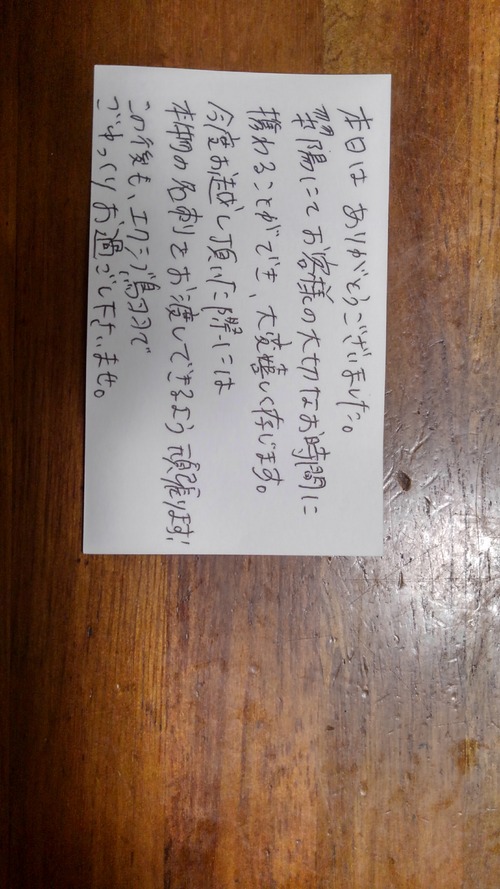 本日は ありがとうございました。
翠陽にてお客様の大切なお時間に
携わることができ、大変嬉しく存じます。
今度お越し頂いた際には
本物の名刺をお渡しできるよう頑張ります!
この後も、エクシブ鳥羽で
ごゆっくりお過ごし下さいませ。